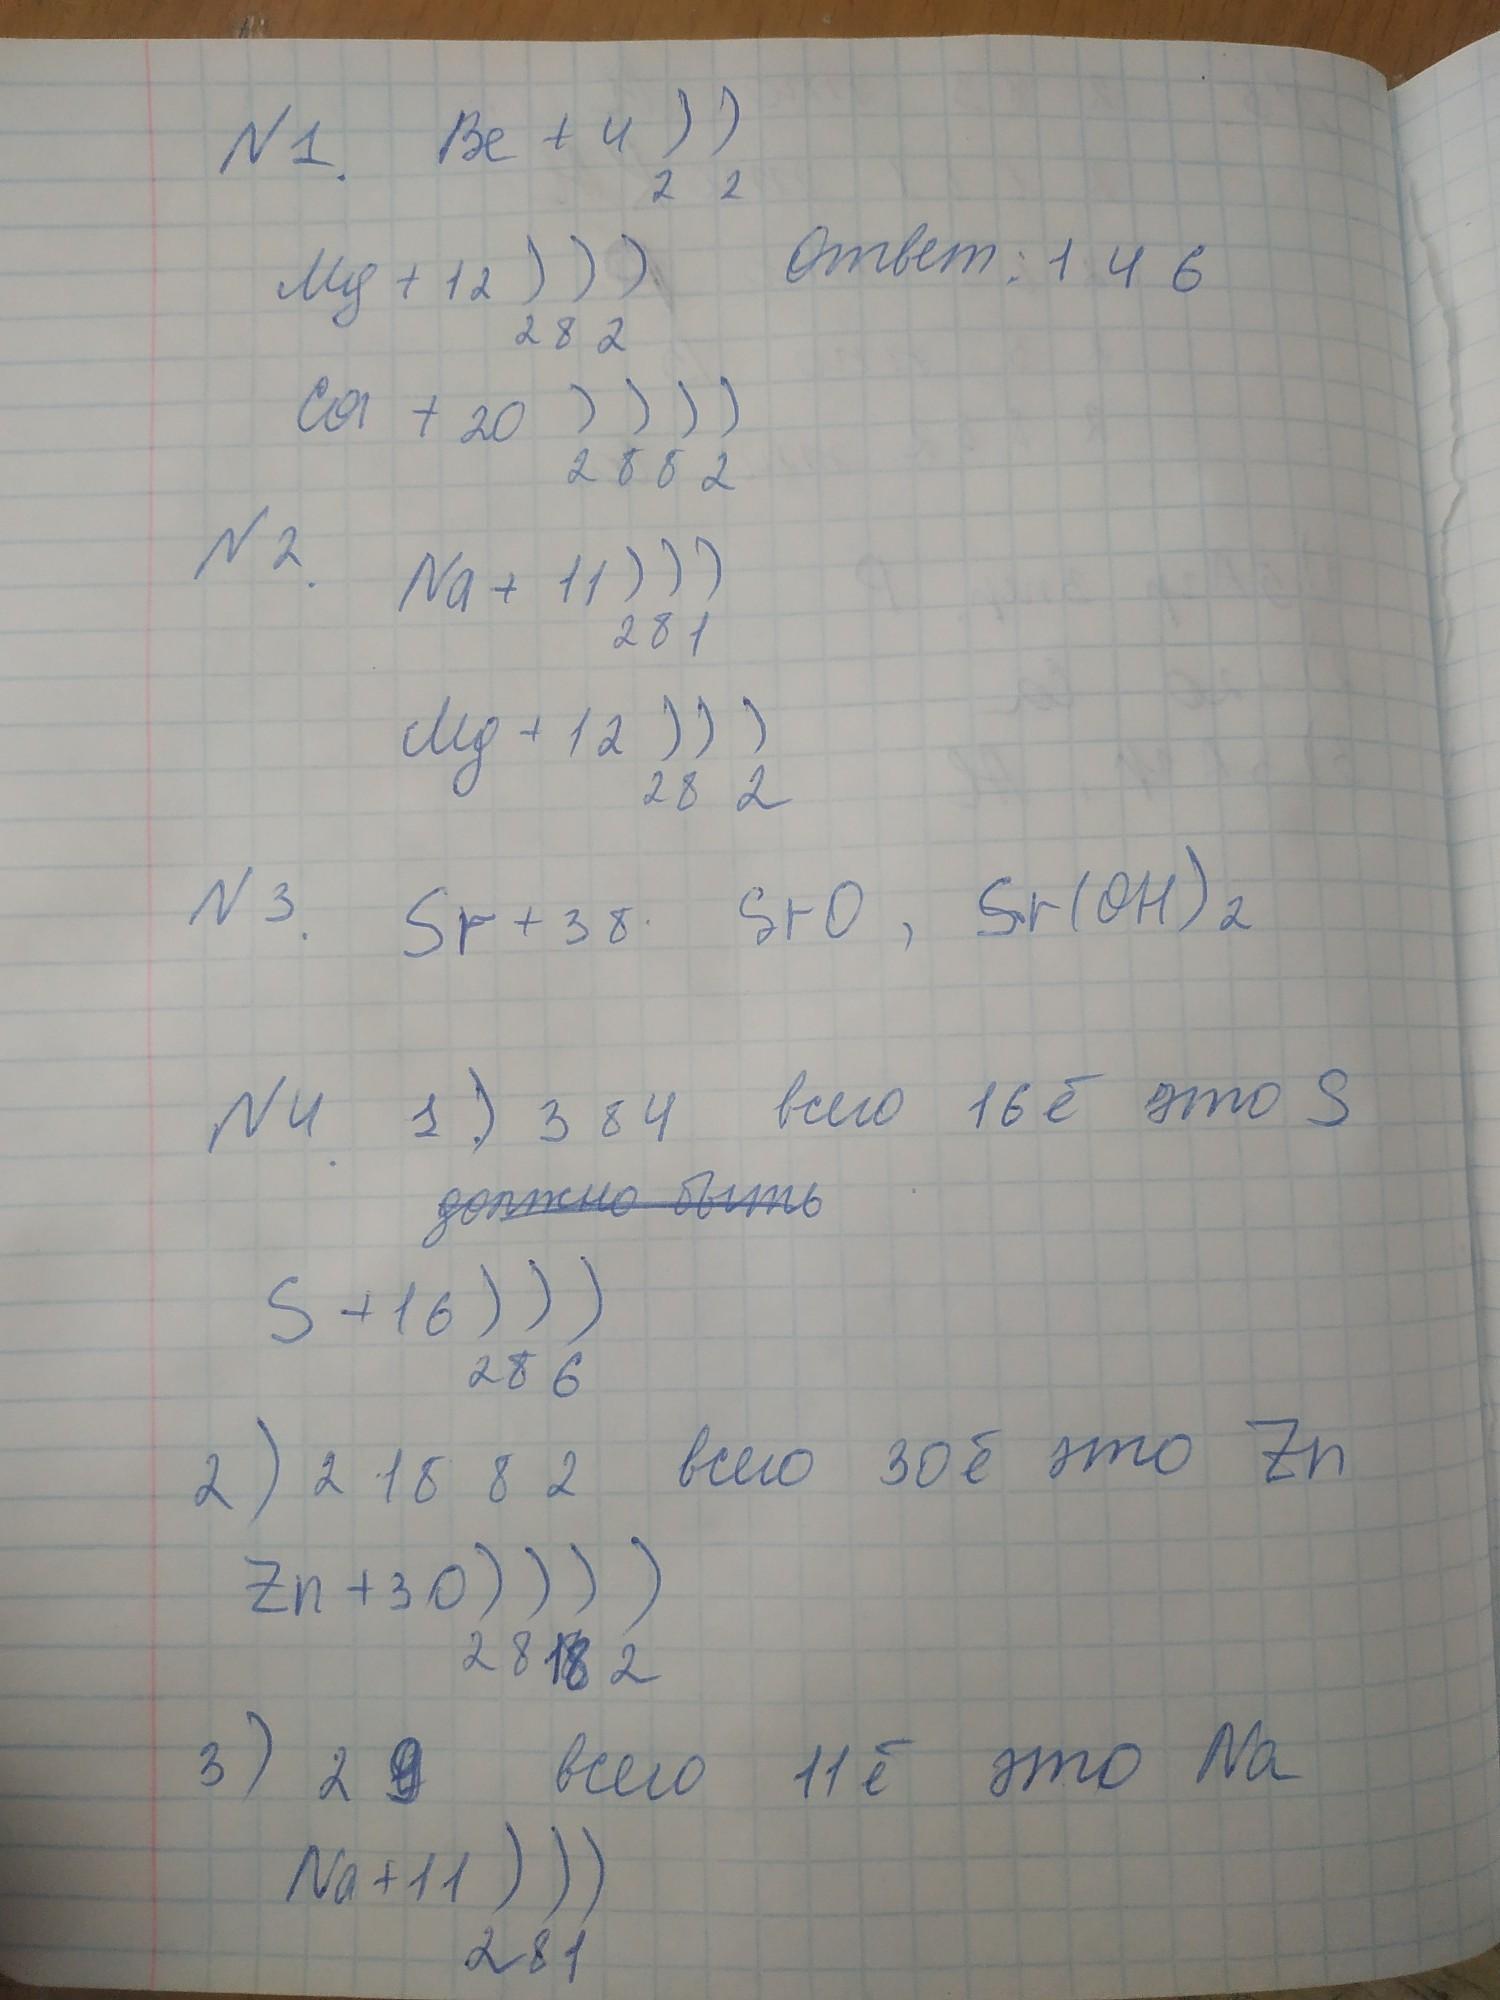 N1. Be + 4 ) )
2 2
Mg + 12 ) ) ) Ответ: 1 4 6
2 8 2
Ca + 20 ) ) ) )
2 8 8 2
N2. Na + 11 ) ) )
2 8 1
Mg + 12 ) ) )
2 8 2
N3. Sr + 38. SrO, Sr(OH)2
N4. 1.) 3 8 4 всего 16 ē это S
должно быть
S + 16 ) ) )
2 8 6
2) 2 18 8 2 всего 30 ē это Zn
Zn + 30 ) ) ) )
2 8 18 2
3) 2 9 всего 11 ē это Na
Na + 11 ) ) )
2 8 1